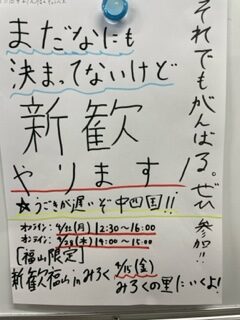 まだなにも
決まってないけど
新歓
やります!
☆うごきが遅いぞ中四国!!
オンライン: 4/11(月) 12:30~16:00
オンライン: 4/28(木) 14:00~15:00
[福山限定]
新歓福山inみろく 4/15(金)
みろくの里にいくよ!
それでもがんばる。ぜひ参加!!